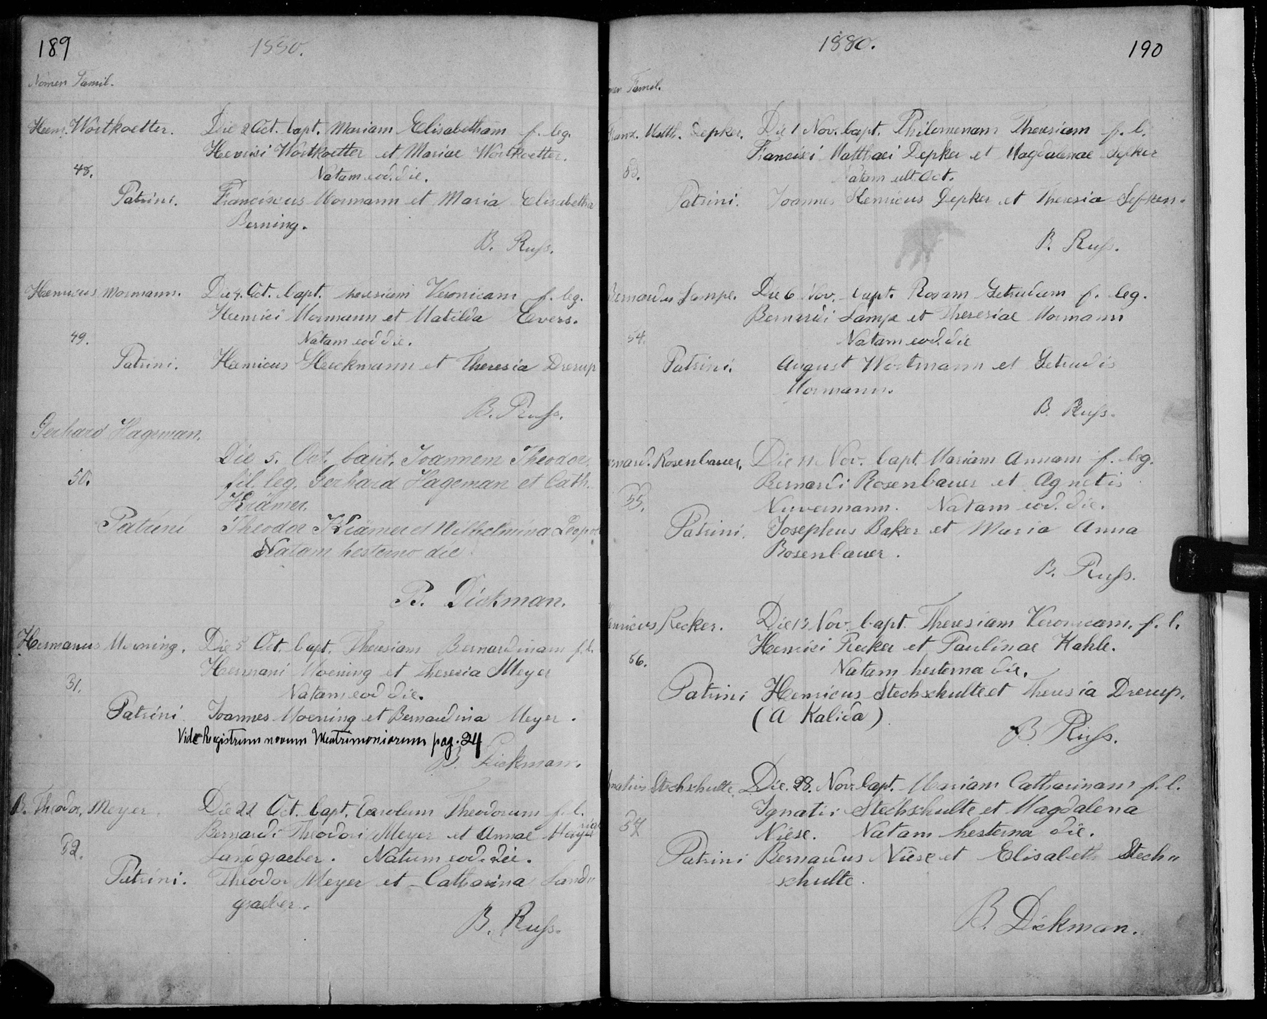 189
1880.
Nomen Famil.
Henr. Wortkoetter. Die 2 Oct. bapt. Mariam Elisabetham f. leg.
Henrici Wortkoetter et Mariae Wortkoetter.
48. Natam eod. die.
Patrini. Franciscus Mormann et Maria Elisabetha
Berning.
B. Russ.
Henricus Mormann. Die 4. Oct. bapt. heresiam Veronicam f. leg.
Henrici Mormann et Matilda Evers.
49. Natam eod die.
Patrini. Henricus Heckmann et Theresia Drerup
B. Russ.
Gerhard Hageman.
Die 5. Oct. bapt. Joannem Theodor
50. fil. leg. Gerhard Hageman et Cath.
Krämer
Patrini Theodor Krämer et Wilhelmina
Natam hesterno die
B. Dickman.
Hermanus Moening. Die 5 Oct. bapt. Theresiam Bernardinam f. l.
Hermani Moening et Theresia Meyer
51. Natam eod die.
Patrini Joannes Moening et Bernardina Meyer.
Vide Registrum novum Matrimoniorum pag. 24
B. Dickman.
B. Theodor, Meyer Die 21 Oct. bapt. Carolum Theodorum f. l.
Bernardi Theodori Meyer et Annae
52. graeber. Natum eod. die.
Patrini. Theodor Meyer et Catharina Land"
graeber.
B. Russ.
1880.
190
Famil.
Franz. Matth. Depker. Die 1 Nov. bapt. Philomenam Theresiam f. l.
Francisci Matthaei Depker et Magdalenae Depker
53. Natam ult. Oct.
Patrini. Joannes Henricus Depker et Theresia
B. Russ.
Bernardus Lampe. Die 6 Nov. bapt. Rosam Getrudem f. leg.
Bernardi Lampe et Theresiae Mormann
54. Natam eod. die
Patrini. August Wortmann et Getrudis
Mormann.
B. Russ.
Bernard. Rosenbauer. Die 11 Nov. bapt Mariam Annam f. leg.
Bernardi Rosenbauer et Agnetis
55. Natam eod. die.
Patrini. Josephus Baker et Maria Anna
Rosenbauer.
B. Russ.
Henricus Recker. Die 12 Nov bapt. Theresiam Veronicam, f. l.
Henrici Recker et Paulinae Kahle.
56. Natam hesterna die.
Patrini Henricus Stechschulte et Theresia Drerup.
(A Kalida)
B. Russ.
Ignatius Stechschulte. Die 28. Nov. bapt. Mariam Catharinam f. l.
Ignatii Stechschulte et Magdalena
57 Niese. Natam hesterna die.
Patrini Bernardus Niese et Elisabeth Stech"
schulte.
B. Dickman.